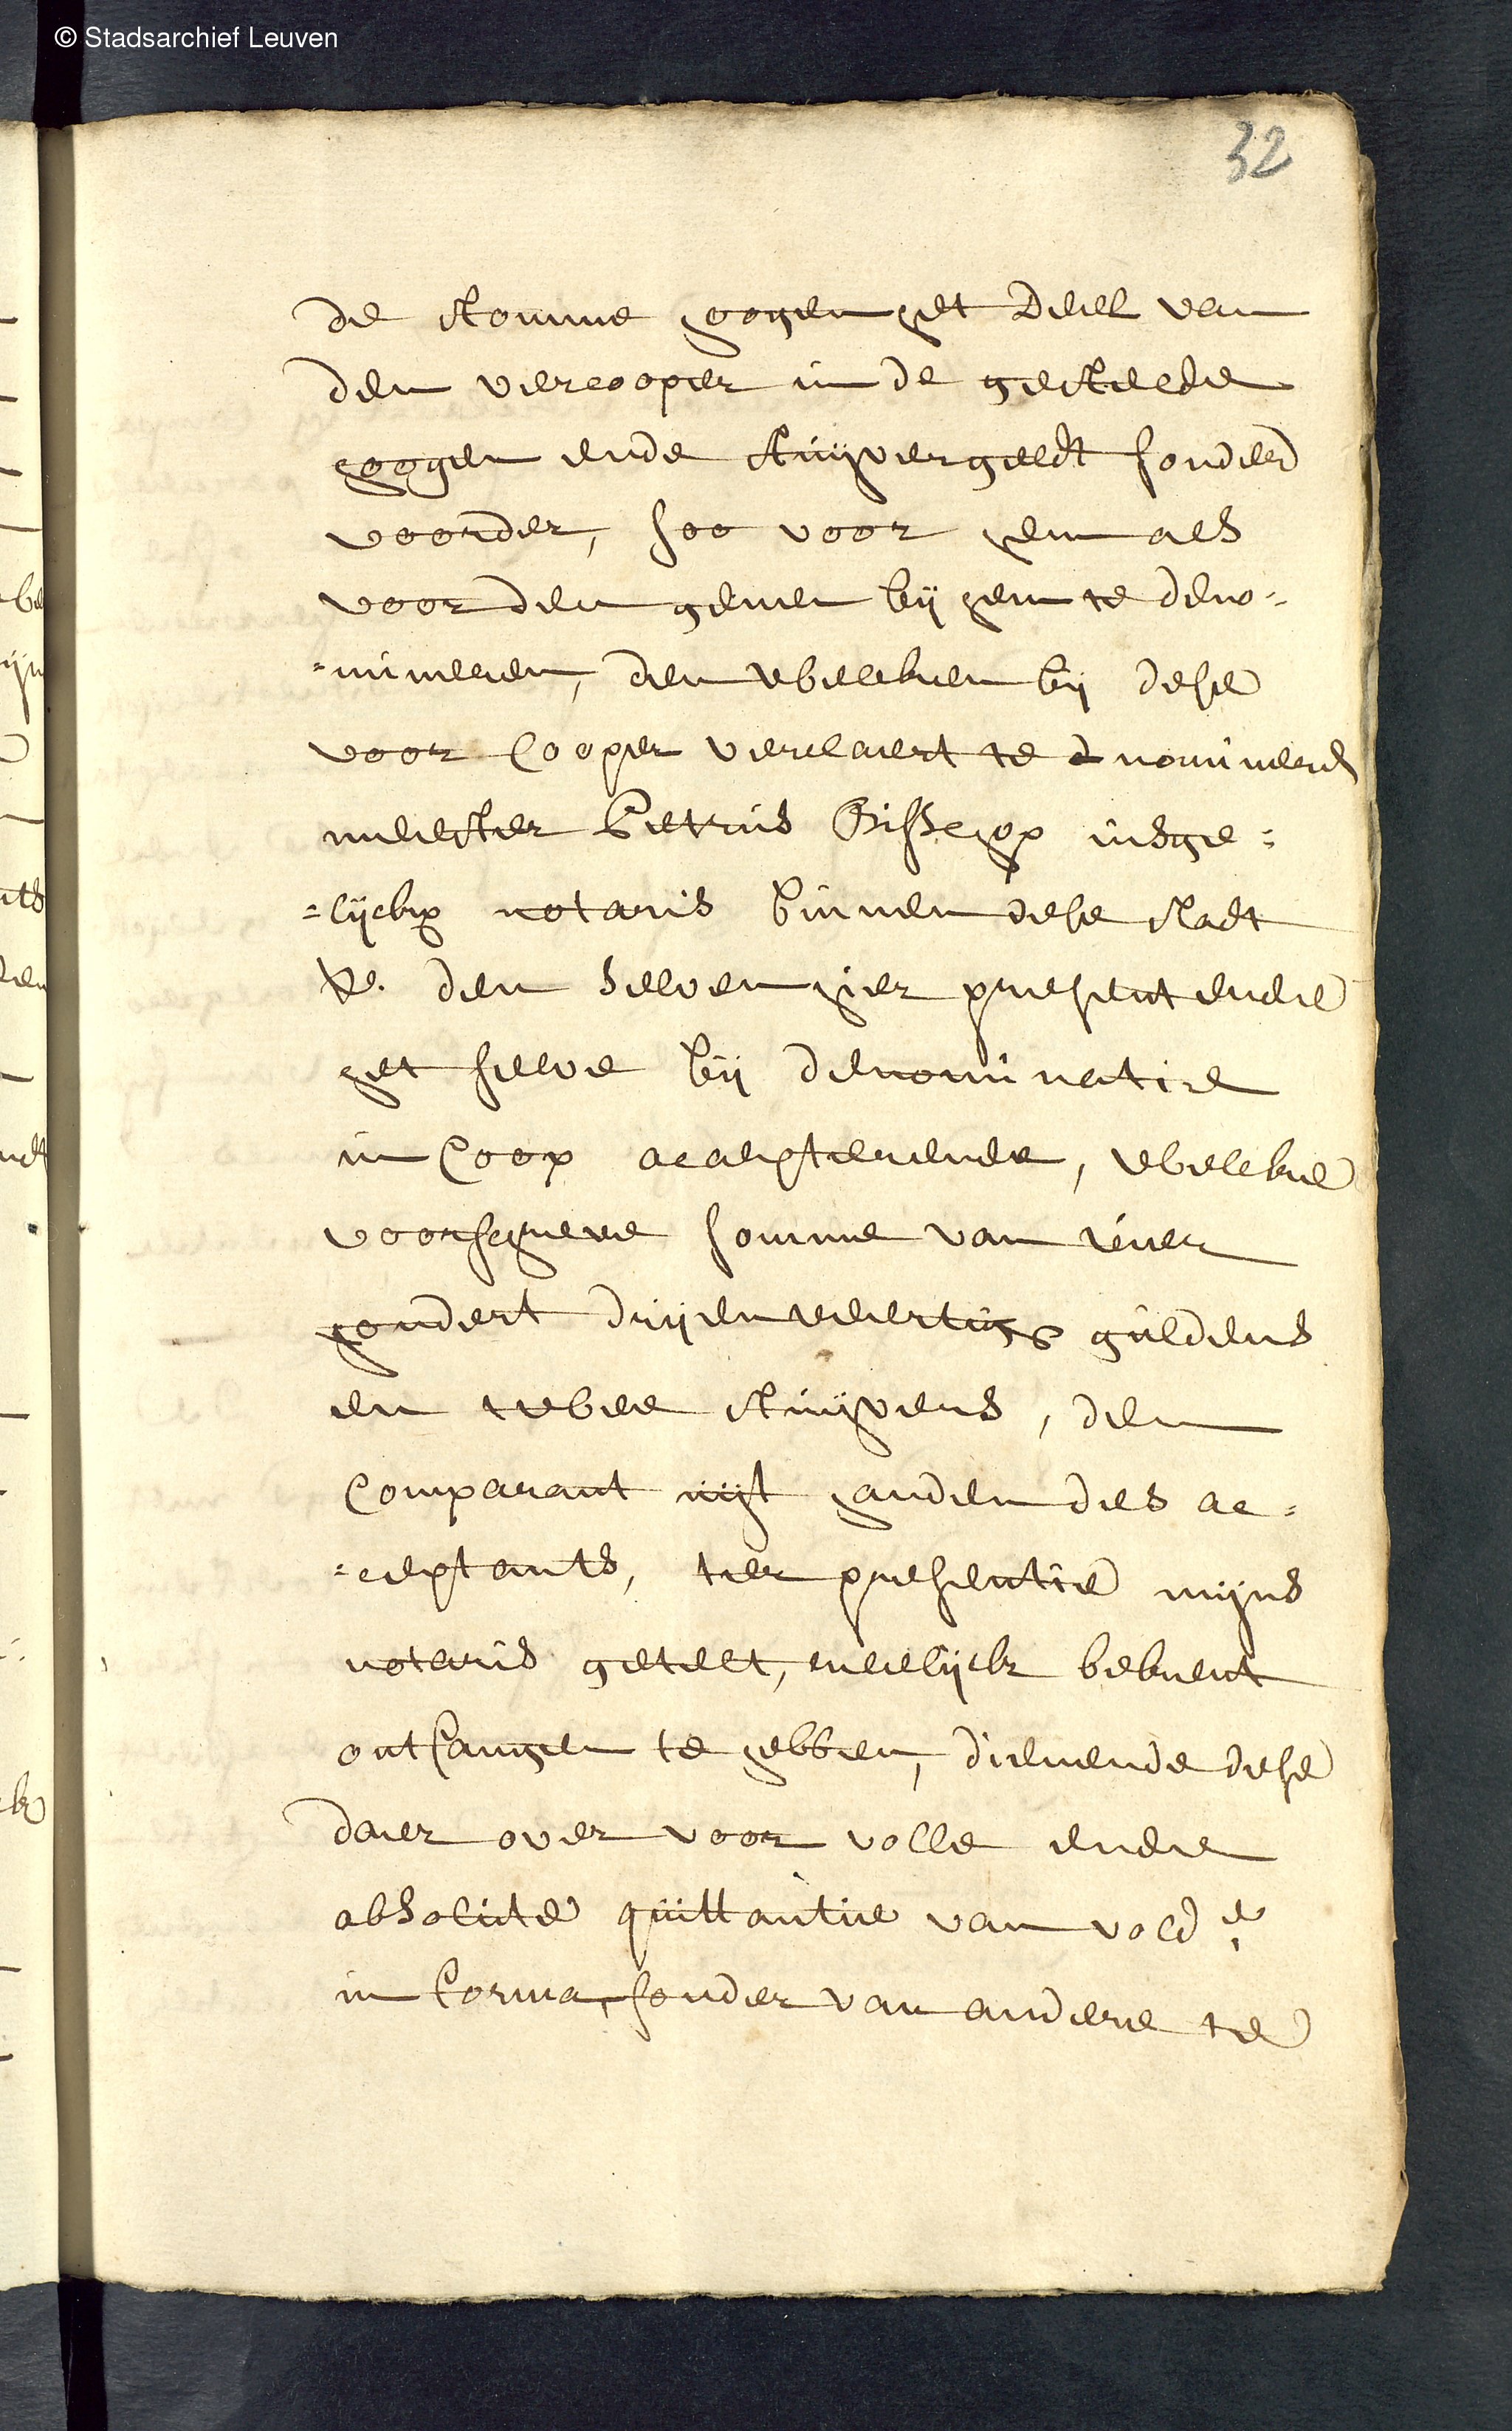 © Stadsarchief Leuven
32
de stomme hooghen het deel van
den vercooper in de gestelde
hooghen ende stuyvergeldt sonder
voorder, soo voor hem als
voor den genen bij hem te deno=
=mineren, den welcken bij dese
voor Cooper verclaert te d nomineren
meester Petrus Bisschop insge=
=lijckx notaris binnen dese stadt
den selven hier present ende
het selve bij denominatie
in Coop accepterende, welcke
voorschreve somme van vier
hondert dryenveertigh guldens
en twee stuyvers, den
Comparant uyt handen des ac=
=ceptants, ter presentie mijns
notaris getelt, eerelijck bekent
ontfangen te hebben, dienende dese
daer over voor volle ende
absolute quittantie van vold.e
in forma, sonder van andere te